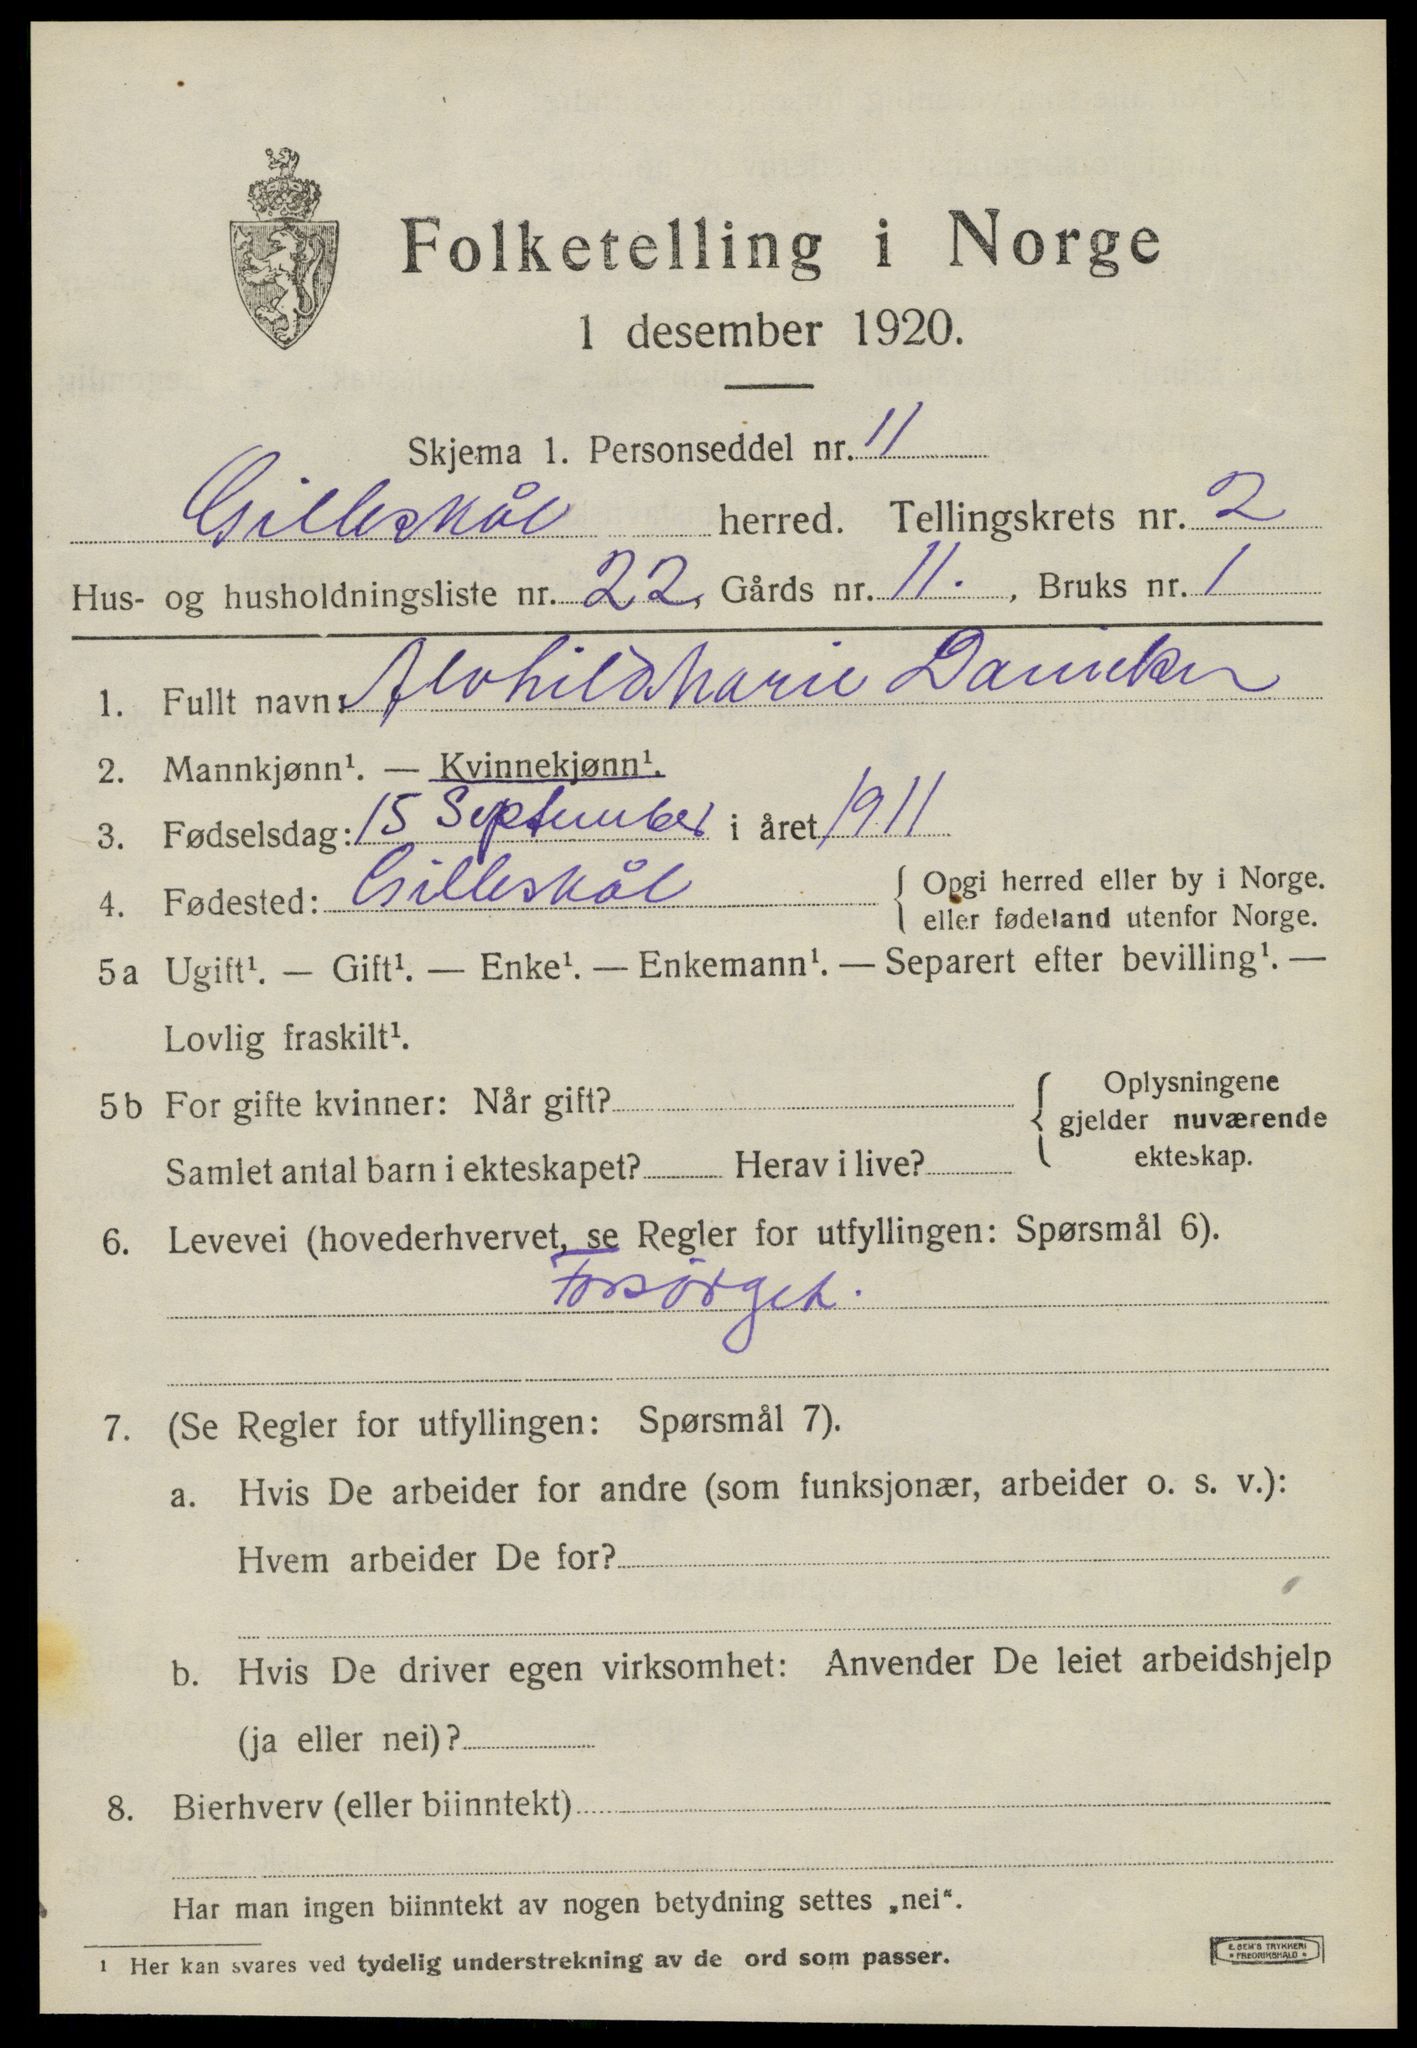 Folketelling i Norge
1 desember 1920.
Skjema 1. Personseddel nr. 11
Gilleskål herred. Tellingskrets nr. 2
Hus- og husholdningsliste nr. 22, Gårds nr. 11. , Bruks nr. 1
1. Fullt navn: Alvhild Marie
2. Mannkjønn¹. — Kvinnekjønn¹.
3. Fødselsdag: 15 September i året 1911
4. Fødested: Gilleskål { Opgi herred eller by i Norge.
eller fødeland utenfor Norge.
5a Ugift¹. — Gift¹. — Enke¹. — Enkemann¹. — Separert efter bevilling¹. —
Lovlig fraskilt¹.
5b For gifte kvinner: Når gift? { Oplysningene
gjelder nuværende
Samlet antal barn i ekteskapet? Herav i live? ekteskap.
6. Levevei (hovederhvervet, se Regler for utfyllingen: Spørsmål 6).
Forsørget.
7. (Se Regler for utfyllingen: Spørsmål 7).
a. Hvis De arbeider for andre (som funksjonær, arbeider o. s. v.):
Hvem arbeider De for?
b. Hvis De driver egen virksomhet: Anvender De leiet arbeidshjelp
(ja eller nei)?
8. Bierhverv (eller biinntekt)
Har man ingen biinntekt av nogen betydning settes „nei“.
¹ Her kan svares ved tydelig understrekning av de ord som passer.
E. SEM'S TRYKKERI
• FREDRIKSHALD •